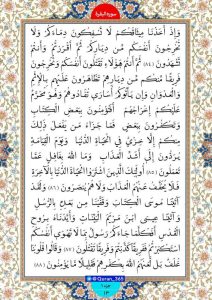 سورة البقرة
وَإِذْ أَخَذْنَا مِيثَاقَكُمْ لَا تَسْفِكُونَ دِمَاءَكُمْ وَلَا
تُخْرِجُونَ أَنْفُسَكُمْ مِنْ دِيَارِكُمْ ثُمَّ أَقْرَرْتُمْ وَأَنْتُمْ
تَشْهَدُونَ ﴿٨٤﴾ ثُمَّ أَنْتُمْ هَؤُلَاءِ تَقْتُلُونَ أَنْفُسَكُمْ وَتُخْرِجُونَ
فَرِيقًا مِنْكُمْ مِنْ دِيَارِهِمْ تَظَاهَرُونَ عَلَيْهِمْ بِالْإِثْمِ
وَالْعُدْوَانِ وَإِنْ يَأْتُوكُمْ أُسَارَى تُفَادُوهُمْ وَهُوَ مُحَرَّمٌ
عَلَيْكُمْ إِخْرَاجُهُمْ أَفَتُؤْمِنُونَ بِبَعْضِ الْكِتَابِ
وَتَكْفُرُونَ بِبَعْضٍ فَمَا جَزَاءُ مَنْ يَفْعَلُ ذَلِكَ
مِنْكُمْ إِلَّا خِزْيٌ فِي الْحَيَاةِ الدُّنْيَا وَيَوْمَ الْقِيَامَةِ
يُرَدُّونَ إِلَى أَشَدِّ الْعَذَابِ وَمَا اللَّهُ بِغَافِلٍ عَمَّا
تَعْمَلُونَ ﴿٨٥﴾ أُولَئِكَ الَّذِينَ اشْتَرَوُا الْحَيَاةَ الدُّنْيَا بِالْآخِرَةِ
فَلَا يُخَفَّفُ عَنْهُمُ الْعَذَابُ وَلَا هُمْ يُنْصَرُونَ ﴿٨٦﴾ وَلَقَدْ
آتَيْنَا مُوسَى الْكِتَابَ وَقَفَّيْنَا مِنْ بَعْدِهِ بِالرُّسُلِ
وَآتَيْنَا عِيسَى ابْنَ مَرْيَمَ الْبَيِّنَاتِ وَأَيَّدْنَاهُ بِرُوحِ
الْقُدُسِ أَفَكُلَّمَا جَاءَكُمْ رَسُولٌ بِمَا لَا تَهْوَى أَنْفُسُكُمُ
اسْتَكْبَرْتُمْ فَفَرِيقًا كَذَّبْتُمْ وَفَرِيقًا تَقْتُلُونَ ﴿٨٧﴾ وَقَالُوا قُلُوبُنَا
غُلْفٌ بَلْ لَعَنَهُمُ اللَّهُ بِكُفْرِهِمْ فَقَلِيلًا مَا يُؤْمِنُونَ ﴿٨٨﴾
@Quran_365
١٣